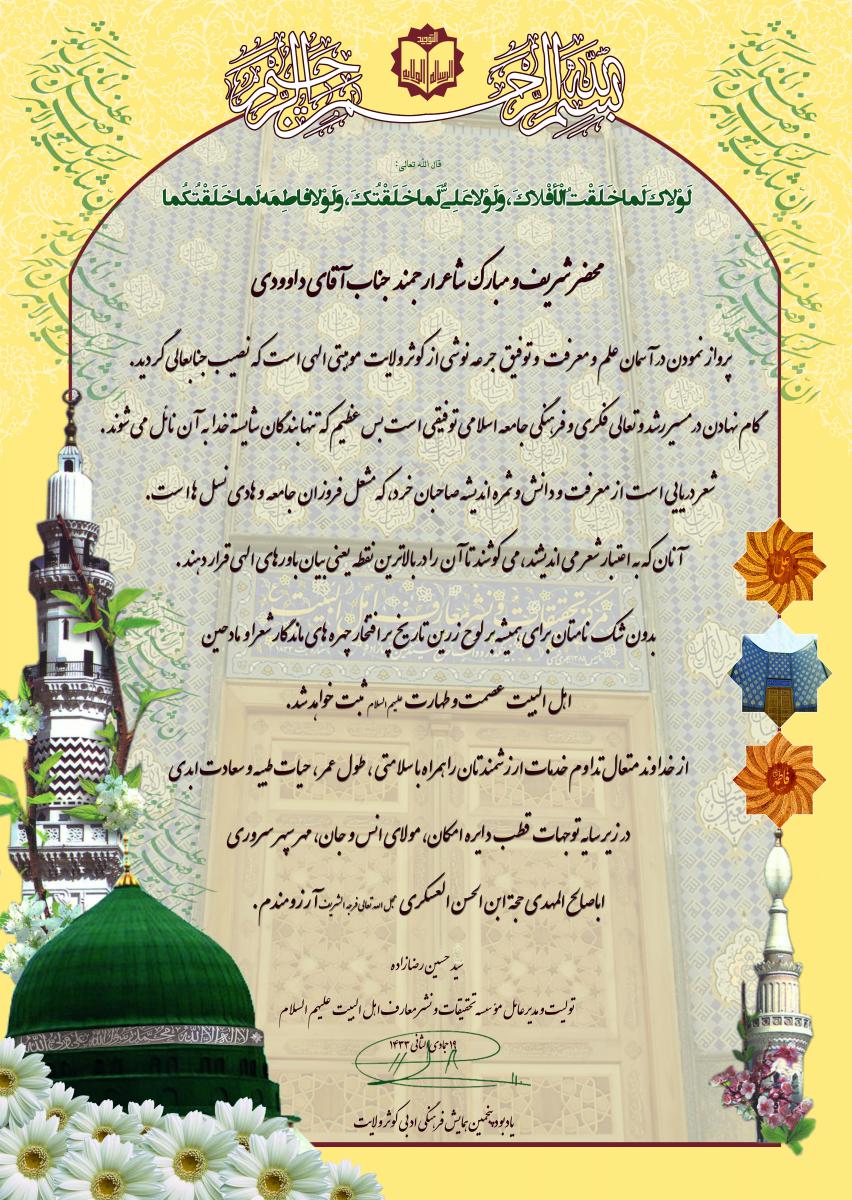 بسم الله الرحمن الرحیم
التوحید
الرسالة الولایة
قال الله تعالی:
لَوْلاكَ لَما خَلَقْتُ الْأَفْلاكَ، وَلَوْلا عَلِيٌّ لَما خَلَقْتُكَ، وَلَوْلا فاطِمَه لَما خَلَقْتُكُما
محضر شریف و مبارک شاعر ارجمند جناب آقای داوودی
پرواز نمودن در آسمان علم و معرفت و توفیق جرعه نوشی از کوثر ولایت موهبتی الهی است که نصیب جنابعالی گردید.
گام نهادن در مسیر رشد و تعالی فکری و فرهنگی جامعه اسلامی توفیقی است بس عظیم که تنها بندگان شایسته خدا به آن نائل می شوند.
شعر دریایی است از معرفت و دانش و ثمره اندیشه صاحبان خرد، که مشعل فروزان جامعه و هادی نسل ها است.
آنان که به اعتبار شعر می اندیشند، می کوشند تا آن را در بالاترین نقطه یعنی بیان باورهای الهی قرار دهند.
بدون شک نامتان برای همیشه بر لوح زرین تاریخ پر افتخار چهره های ماندگار شعرا و مادحین
اهل البیت عصمت و طهارت علیهم السلام ثبت خواهد شد.
از خداوند متعال تداوم خدمات ارزشمندتان را همراه با سلامتی، طول عمر، حیات طیبه و سعادت ابدی
در زیر سایه توجهات قطب دایره امکان، مولای انس و جان، مهر سپهر سروری
اباصالح المهدی حجة ابن الحسن العسکری عجل الله تعالی فرجه الشریف آرزومندم.
سید حسین رضازاده
تولیت و مدیر عامل مؤسسه تحقیقات و نشر معارف اهل البیت علیهم السلام
۱۹ جمادی الثانی ۱۴۳۳
یادبود پنجمین همایش فرهنگی ادبی کوثر ولایت
علی
فاطمة